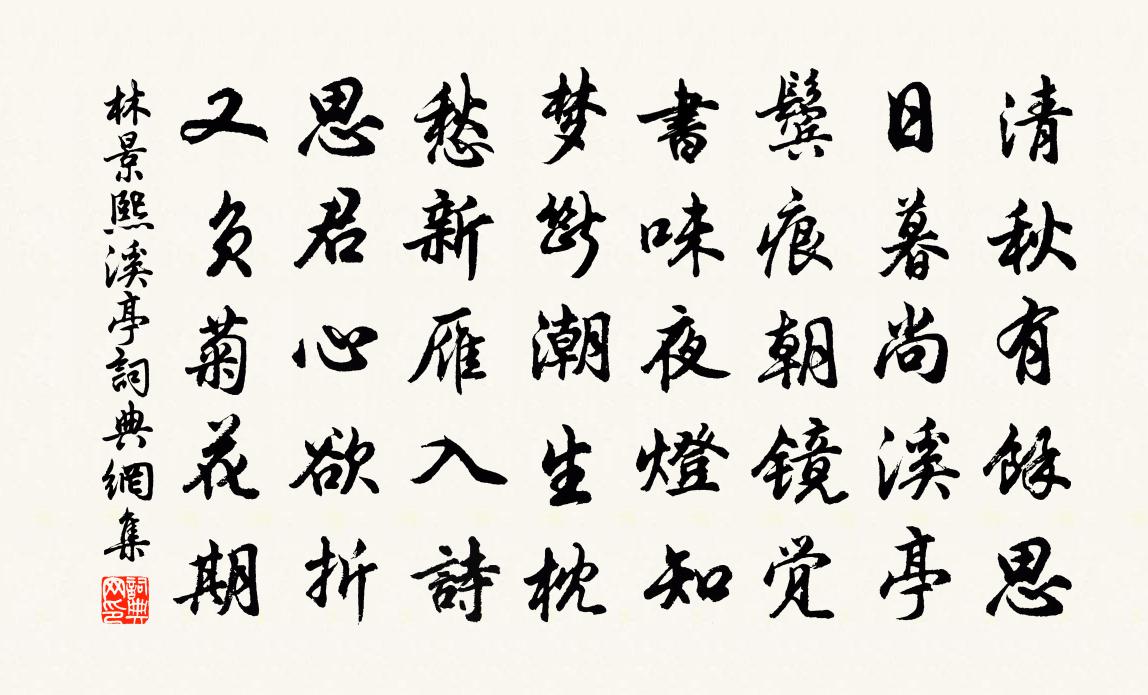 清秋有餘思
日暮尚溪亭
鬓痕朝镜觉
書味夜燈知
梦斷潮生枕
愁新雁入詩
思君心欲折
又负菊花期
林景熙溪亭詞典網集
詞典网印